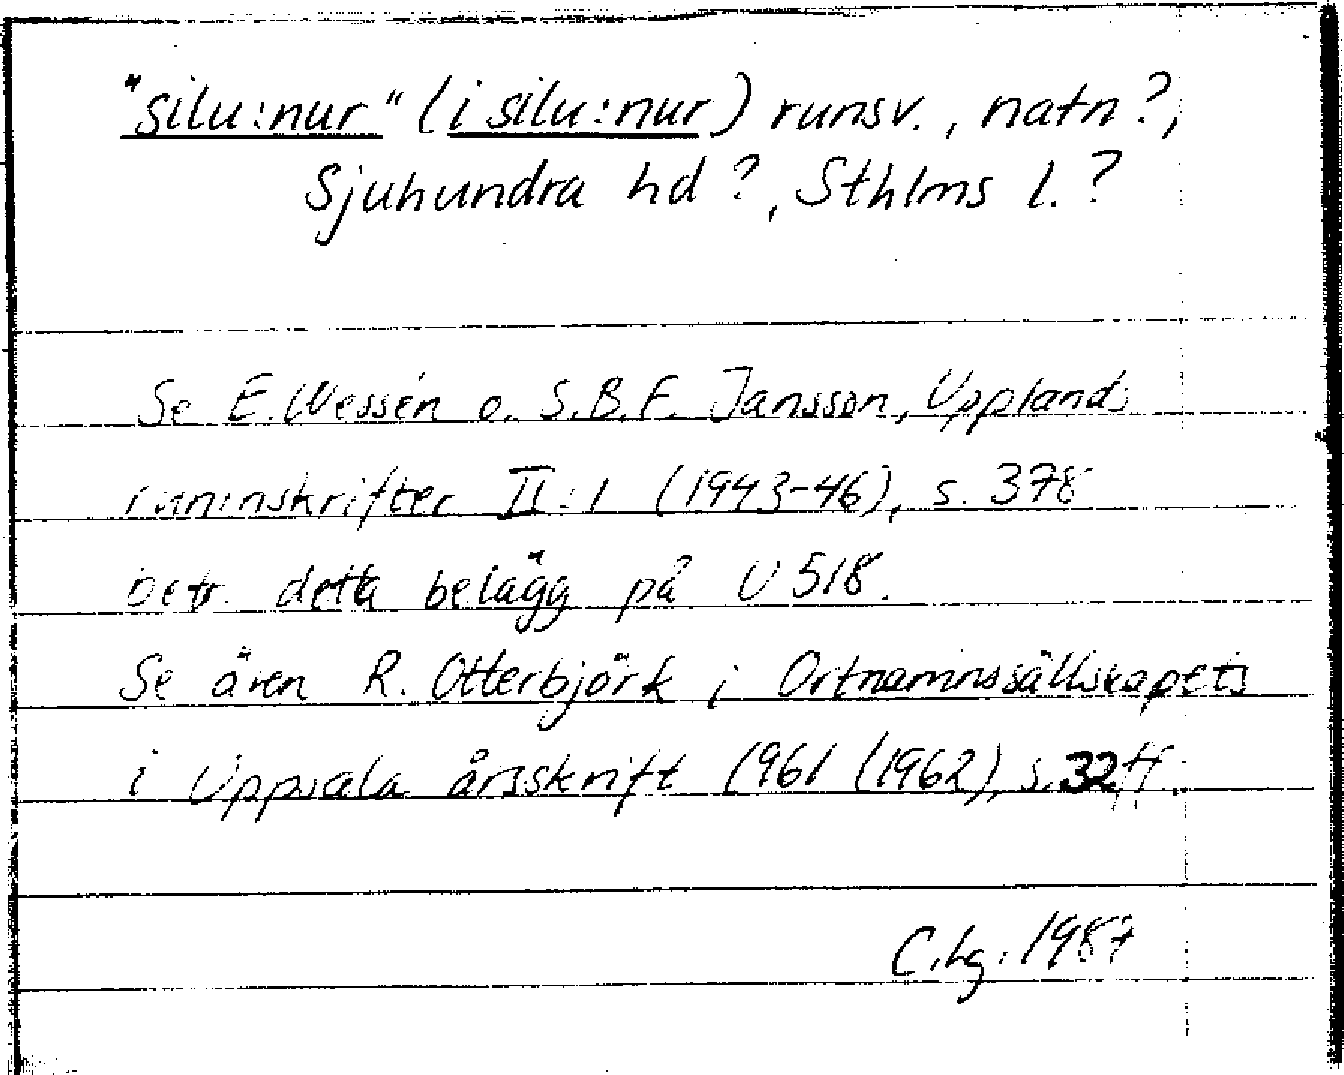 "silu:nur" (i silu:nur) runsv., natn?,
Sjuhundra hd?, Sthlms l.?
Se E. Wessén o. S.B.F. Jansson, Upplands
runinskrifter II:1 (1943-46), s. 378
betr. detta belägg på U 518.
Se även R. Otterbjörk i Ortnamnssällskapets
i Uppsala årsskrift 1961 (1962), s. 32 ff.
C.hg. 1987